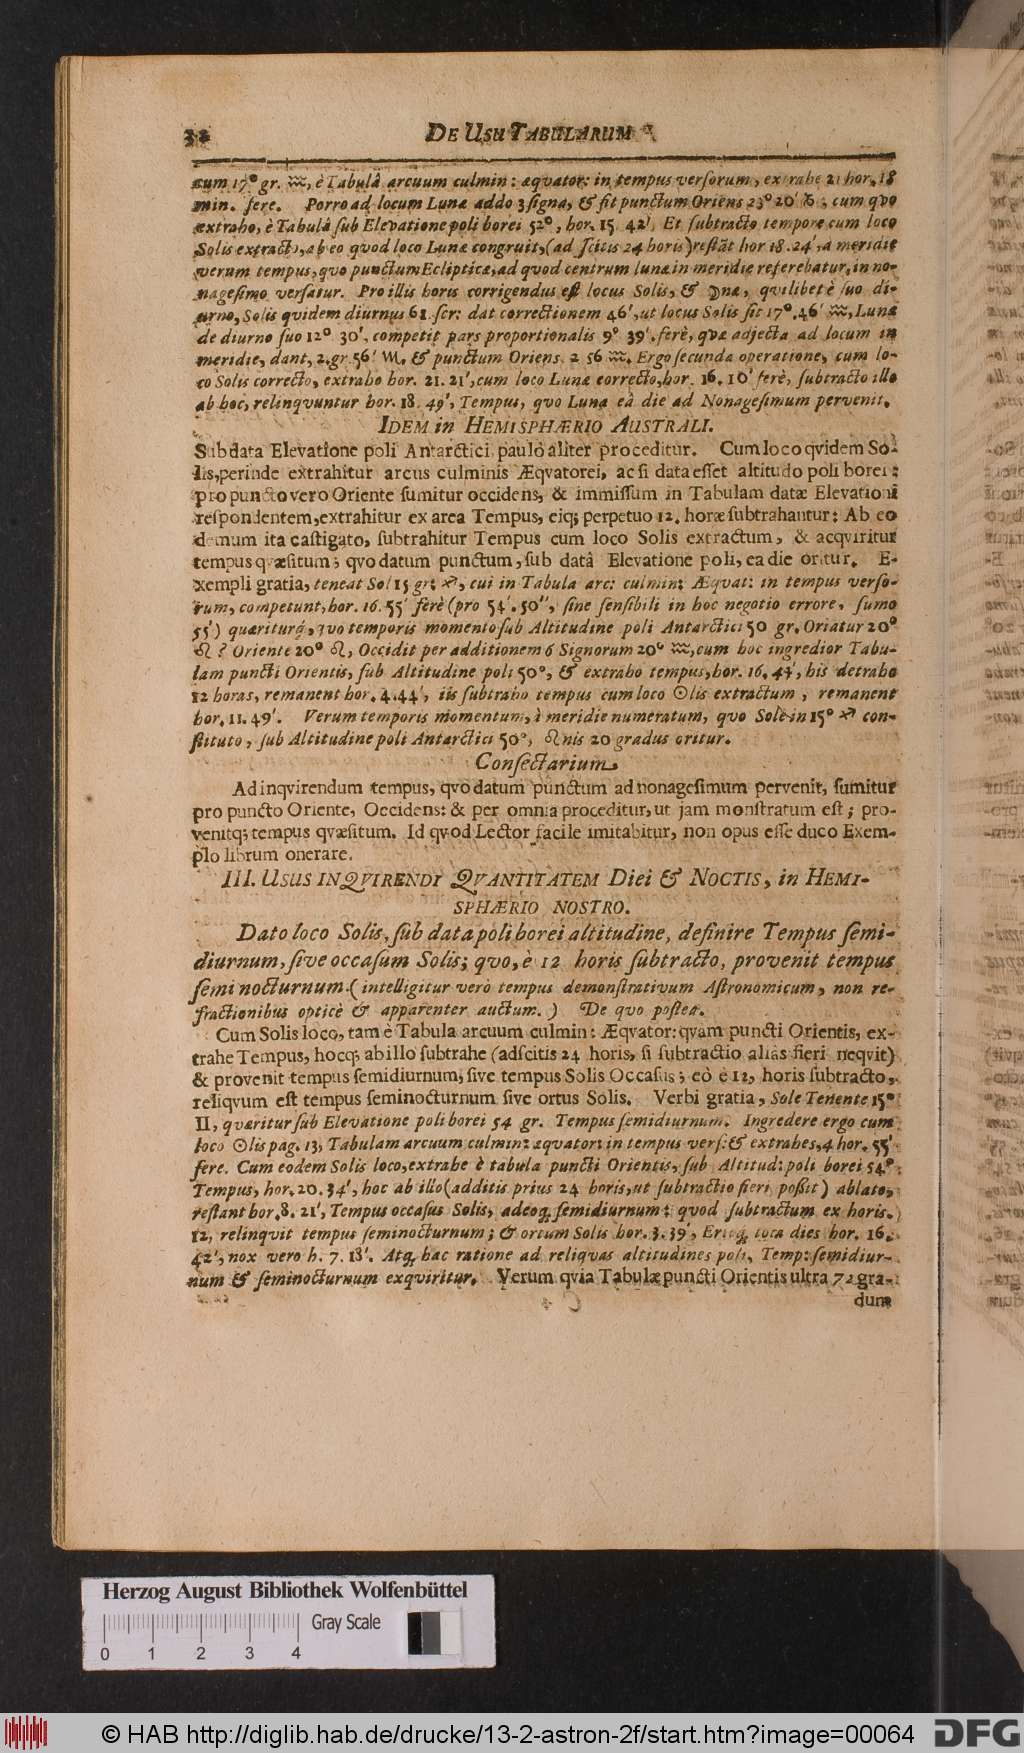 32 DE USU TABULARUM
cum 17° gr. ♒, è Tabulâ arcuum culmin: æqvator: in tempus versorum, extrahe 21 hor. 18
min. fere. Porro ad locum Lunæ addo 3 signa, & fit punctum Oriens 23° 20′ ♉; cum qvo
extraho, è Tabulâ sub Elevatione poli borei 52°, hor. 15. 42′, Et subtracto tempore cum loco
Solis extracto, ab eo qvod loco Lunæ congruit, (ad scitis 24 horis) restāt hor 18. 24′, a meridie
verum tempus, qvo punctum Eclipticæ, ad quod centrum lunæ in meridie referebatur, in no-
nagesimo versatur. Pro illis horis corrigendus est locus Solis, & ☽næ, qvilibet è suo di-
urno, Solis qvidem diurnus 61. scr: dat correctionem 46′, ut locus Solis sit 17°. 46′ ♒, Lunæ
de diurno suo 12° 30′, competit pars proportionalis 9° 39′. ferè, qvæ adjecta ad locum in
meridie, dant, 2. gr. 56′ ♏, & punctum Oriens. 2 56 ♒. Ergo secunda operatione, cum lo-
co Solis correcto, extraho hor. 21. 21′, cum loco Lunæ correcto, hor. 16. 10′ ferè, subtracto illo
ab hoc, relinqvuntur hor. 18. 49′, Tempus, qvo Luna eâ die ad Nonagesimum pervenit.
IDEM in HEMISPHÆRIO AUSTRALI.
Sub data Elevatione poli Antarctici, paulò aliter proceditur. Cum loco qvidem So-
lis, perinde extrahitur arcus culminis Æqvatorei, ac si data esset altitudo poli borei:
pro puncto vero Oriente sumitur occidens, & immissum in Tabulam datæ Elevationi
respondentem, extrahitur ex area Tempus, eiq; perpetuo 12. horæ subtrahantur: Ab eo
demum ita castigato, subtrahitur Tempus cum loco Solis extractum, & acqviritur
tempus qvæsitum; qvo datum punctum, sub datâ Elevatione poli, ea die oritur. E-
xempli gratia, teneat Sol 15 gr: ♐, cui in Tabula arc: culmin: Æqvat: in tempus verso-
rum, competunt, hor. 16. 55′ ferè (pro 54′. 50″, sine sensibili in hoc negotio errore, sumo
55′) quæriturq́, qvo temporis momento sub Altitudine poli Antarctici 50 gr. Oriatur 20°
♌? Oriente 20° ♌, Occidit per additionem 6 Signorum 20° ♒, cum hoc ingredior Tabu-
lam puncti Orientis, sub Altitudine poli 50°, & extraho tempus, hor. 16. 44′, his detraho
12 horas, remanent hor. 4. 44′, iis subtraho tempus cum loco ☉lis extractum, remanent
hor. 11. 49′. Verum temporis momentum, à meridie numeratum, quo Sole in 15° ♐ con-
stituto, sub Altitudine poli Antarctici 50°, ♌nis 20 gradus oritur.
Consectarium.
Ad inqvirendum tempus, qvo datum punctum ad nonagesimum pervenit, sumitur
pro puncto Oriente, Occidens: & per omnia proceditur, ut jam monstratum est; pro-
venitq; tempus qvæsitum. Id qvod Lector facile imitabitur, non opus esse duco Exem-
plo librum onerare.
III. USUS INQVIRENDI QVANTITATEM Diei & NOCTIS, in HEMI-
SPHÆRIO NOSTRO.
Dato loco Solis, sub data poli borei altitudine, definire Tempus semi-
diurnum, sive occasum Solis; quo, è 12 horis subtracto, provenit tempus
semi nocturnum. (intelligitur verò tempus demonstrativum Astronomicum, non re-
fractionibus opticè & apparenter auctum.) De quo postea.
Cum Solis loco, tam è Tabula arcuum culmin: Æqvator: qvam puncti Orientis, ex-
trahe Tempus, hocq; ab illo subtrahe (adscitis 24 horis, si subtractio alias fieri neqvit)
& provenit tempus semidiurnum, sive tempus Solis Occasus; eò è 12, horis subtracto,
reliqvum est tempus seminocturnum sive ortus Solis. Verbi gratia, Sole Tenente 15°
II, quæritur sub Elevatione poli borei 54 gr. Tempus semidiurnum. Ingredere ergo cum
loco ☉lis pag. 13, Tabulam arcuum culmin: æquator: in tempus vers: & extrahes, 4 hor. 55′
fere. Cum eodem Solis loco, extrahe è tabula puncti Orientis, sub Altitud: poli borei 54°
Tempus, hor. 20. 34′, hoc ab illo (additis prius 24 horis, ut subtractio fieri possit) ablato,
restant hor. 8. 21′, Tempus occasus Solis, adeoq́ semidiurnum: quod subtractum ex horis.
12, relinqvit tempus seminocturnum; & ortum Solis hor. 3. 39′, Eritq́ tota dies hor. 16.
42′, nox vero h. 7. 18′. Atq́ hac ratione ad reliqvas altitudines poli, Temp: semidiur-
num & seminocturnum exquiritur. Verum qvia Tabulæ puncti Orientis ultra 72 gra-
dum
Herzog August Bibliothek Wolfenbüttel
Gray Scale
0 1 2 3 4
© HAB http://diglib.hab.de/drucke/13-2-astron-2f/start.htm?image=00064 DFG